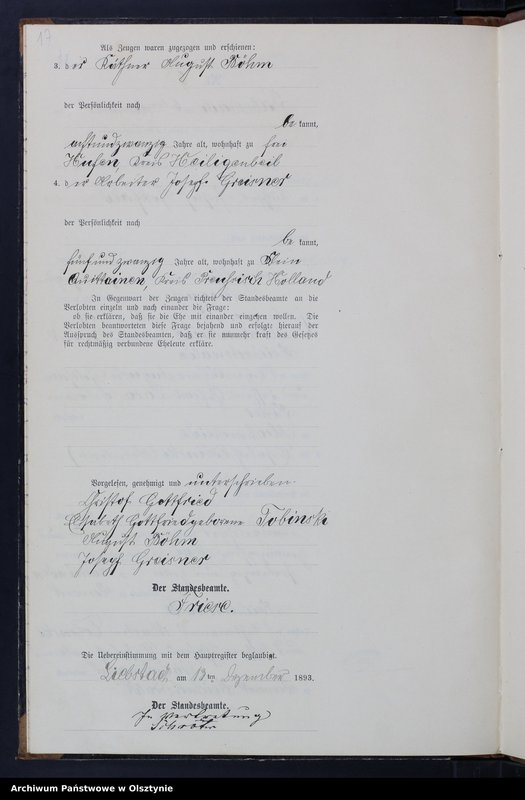 17
Als Zeugen waren zugezogen und erschienen:
3. der Käthner August Böhm
der Persönlichkeit nach
be kannt,
achtundzwanzig Jahre alt, wohnhaft zu
Hufen Kreis Heiligenbeil
4. der Arbeiter Josef Greisner
der Persönlichkeit nach
be kannt,
fünfundzwanzig Jahre alt, wohnhaft zu Klein
Quittainen, Kreis Preußisch Holland
In Gegenwart der Zeugen richtete der Standesbeamte an die
Verlobten einzeln und nach einander die Frage:
ob sie erklären, daß sie die Ehe mit einander eingehen wollen. Die
Verlobten beantworteten diese Frage bejahend und erfolgte hierauf der
Ausspruch des Standesbeamten, daß er sie nunmehr kraft des Gesetzes
für rechtmäßig verbundene Eheleute erkläre.
Vorgelesen, genehmigt und unterschrieben.
Gottfried
Elisabeth Gottfried geborene Tobinski
August Böhm
Josef Greisner
Der Standesbeamte.
Friese.
Die Uebereinstimmung mit dem Hauptregister beglaubigt.
Liebstadt, am 13ten Dezember 1893.
Der Standesbeamte.
In Vertretung
Archiwum Państwowe w Olsztynie